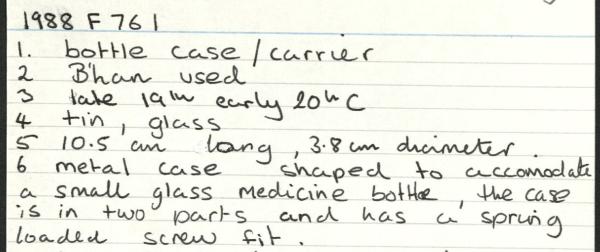 1988 F 761
1. bottle case / carrier
2 B'han used
3 late 19th early 20th C
4 tin, glass
5 10.5 cm long, 3.8 cm diameter.
6 metal case shaped to accomodate
a small glass medicine bottle, the case
is in two parts and has a spring
loaded screw fit.